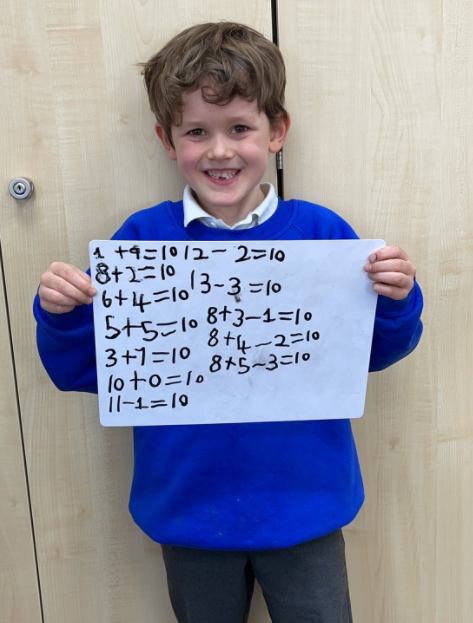 1 +9=10
8+2=10
6+4=10
5+5=10
3+7=10
10+0=10
11-1=10
12-2=10
13-3=10
8+3-1=10
8+4-2=10
8+5-3=10